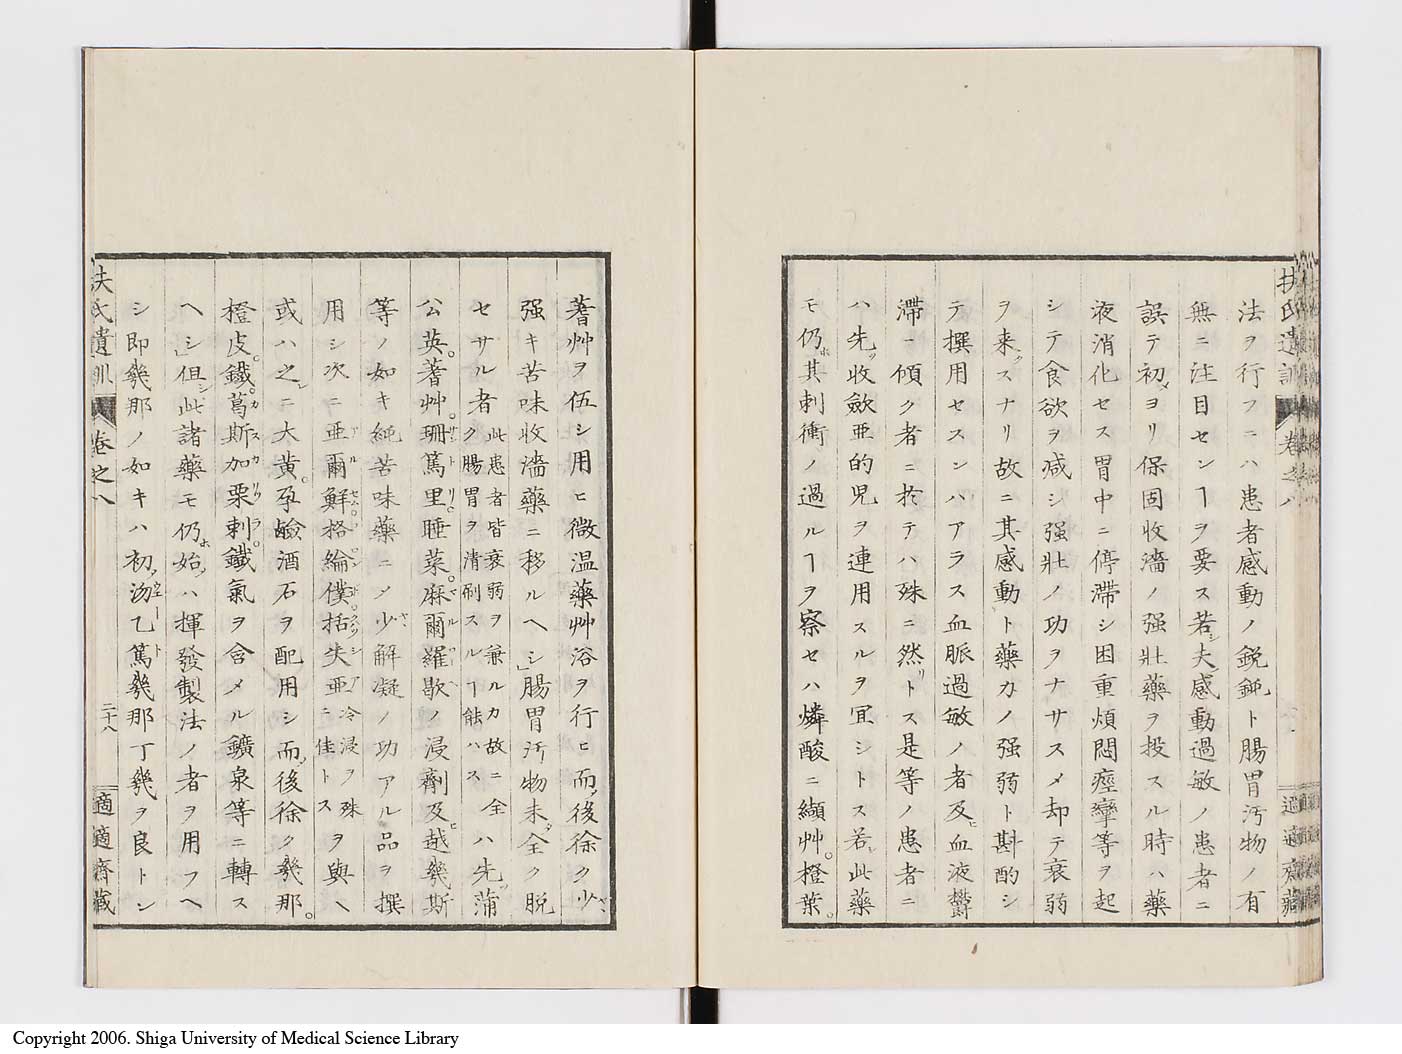 法ヲ行フニハ患者感動ノ鋭鈍ト腸胃汚物ノ有
無ニ注目センヿヲ要ス若シ夫感動過敏ノ患者ニ
誤テ初メヨリ保固收濇ノ强壯藥ヲ投スル時ハ藥
液消化セス胃中ニ停滯シ困重煩悶痙攣等ヲ起
シテ食欲ヲ減シ强壯ノ功ヲナサスメ却テ衰弱
ヲ来スナリ故ニ其感動ト藥力ノ强弱ト斟酌シ
テ撰用セスンハアラス血脈過敏ノ者及ヒ血液鬱
滯ニ傾ク者ニ於テハ殊ニ然リトス是等ノ患者ニ
ハ先ツ收斂亜的児ヲ連用スルヲ冝シトス若シ此藥
モ仍ホ其刺衝ノ過ルヿヲ察セハ燐酸ニ纈艸。橙葉。
扶氏遺訓 卷之八
適適齋藏
蓍艸ヲ伍シ用ヒ微温藥艸浴ヲ行ヒ而後徐ク少
强キ苦味收濇藥ニ移ルヘシ」腸胃汚物未タ全ク脱
セサル者此患者皆衰弱ヲ兼ルカ故ニ全ク腸胃ヲ清刷スルヿ能ハスハ先ツ蒲
公英。蓍艸。珊篤里。睡菜。麻爾羅歇ノ浸劑及ヒ越幾斯
等ノ如キ純苦味藥ニメ少シ解凝ノ功アル品ヲ撰
用シ次ニ亜爾鮮。格綸僕。括失亜冷浸ヲ殊ニ佳トスヲ與ヘ
或ハ之ニ大黄。孕鹼酒石ヲ配用シ而後徐ク幾那。
橙皮。鐵。葛斯加栗剌。鐵氣ヲ含メル鑛泉等ニ轉ス
ヘシ」但シ此諸藥モ仍ホ始メハ揮發製法ノ者ヲ用フヘ
シ即幾那ノ如キハ初メ沕乙篤幾那丁幾ヲ良トシ
扶氏遺訓 卷之八
二十八
適適齋藏
Copyright 2006. Shiga University of Medical Science Library